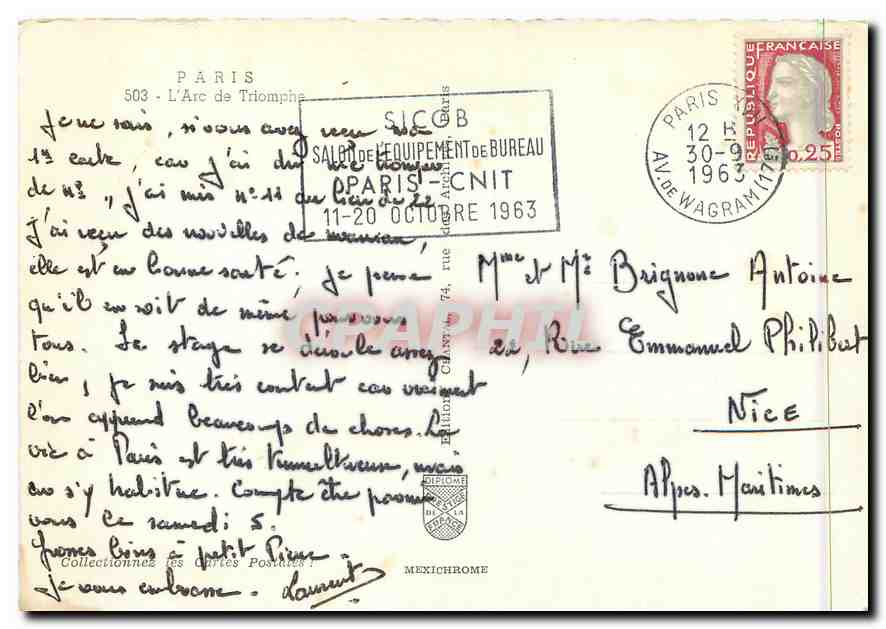 PARIS
503 - L'Arc de Triomphe
SICOB
SALON DE L'EQUIPEMENT DE BUREAU
PARIS - CNIT
11-20 OCTOBRE 1963
PARIS XVII
12 H
30-9
1963
AV. DE WAGRAM (17e)
REPUBLIQUE FRANÇAISE
0,25
Je ne sais, si vous avez reçu ma
1re carte, car j'ai dû me tromper
de n°, j'ai mis n° 11 au lieu de 22
J'ai reçu des nouvelles de maman,
elle est en bonne santé. Je pense
qu'il en soit de même pour vous
tous. Le stage se déroule assez
bien, je suis très content car vraiment
l'on apprend beaucoup de choses. La
vie à Paris est très tumultueuse, mais
on s'y habitue. Compte être parmi
vous le samedi 5.
Grosses bises à petit Pierre.
Je vous embrasse. Laurent
Mme et Mr Brignone Antoine
22, Rue Emmanuel Philibert
NICE
Alpes-Maritimes
Editions CHANTAL, 74, rue des Archives, Paris
CPAPHIL
DIPLOME
PRESTIGE
DE LA
FRANCE
Collectionnez les Cartes Postales !
MEXICHROME